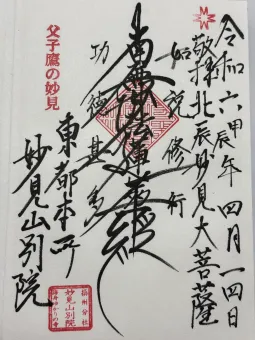 令和六甲辰年四月一四日
敬拝北辰妙見大菩薩
如説修行
南無妙法蓮華経
功徳甚多
東都本所
妙見山別院
父子鷹の妙見
妙見山別院